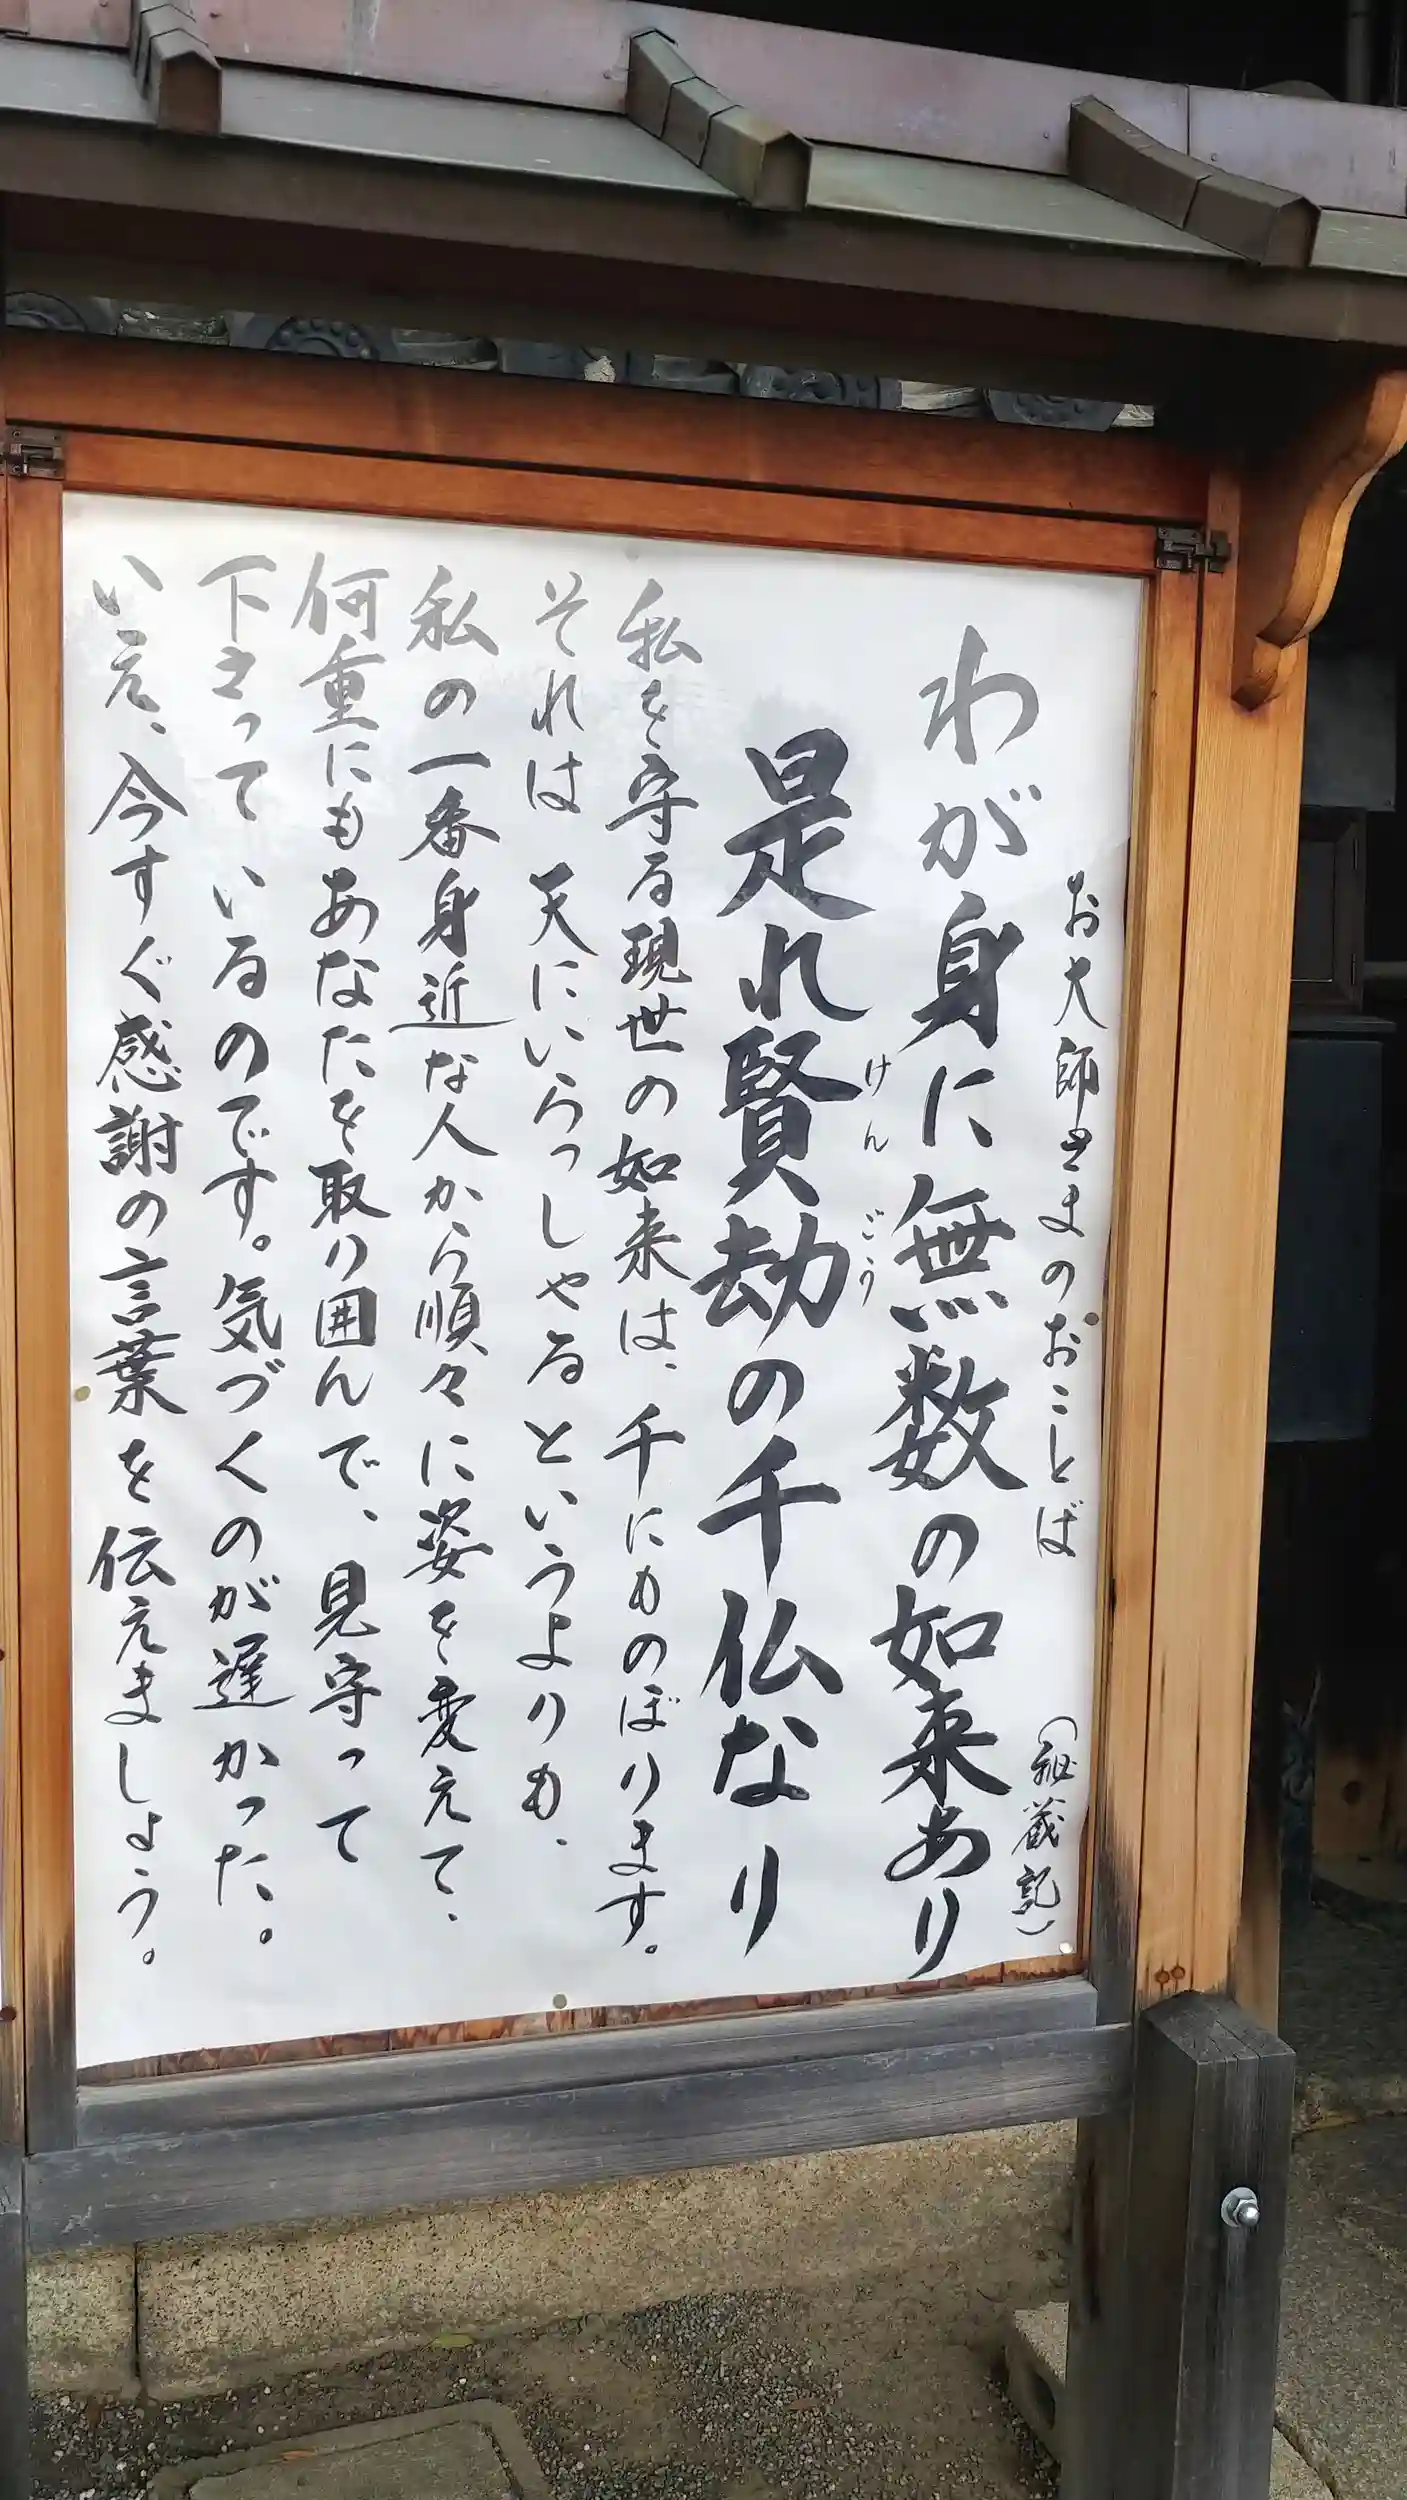 お大師さまのおことば (秘蔵記)
わが身に無数の如来あり
是れ賢劫の千仏なり
けんごう
私を守る現世の如来は、千にものぼります。
それは 天にいらっしゃるというよりも、
私の一番身近な人から順々に姿を変えて、
何重にもあなたを取り囲んで、見守って
下さっているのです。気づくのが遅かった。
いえ、今すぐ感謝の言葉を伝えましょう。